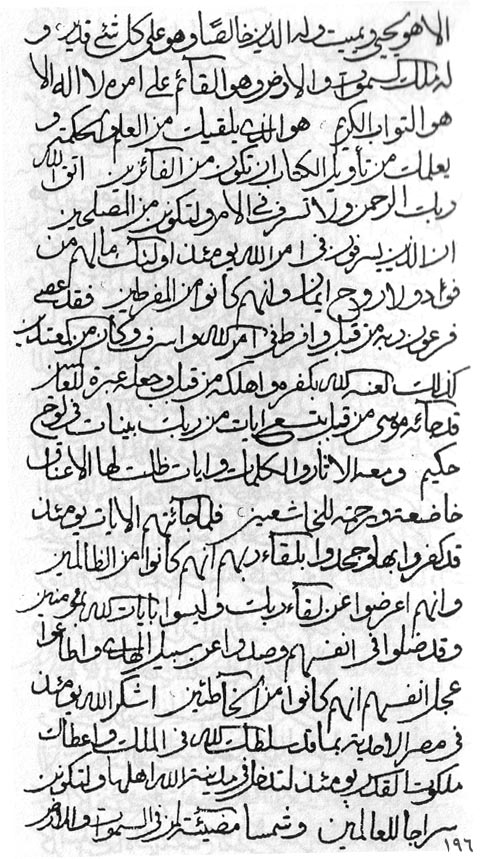 الا هو يحيي ويميت وله الدين خالصا وهو على كل شئ قدير و
له ملك السموات والارض وهو القائم على امره لا اله الا
هو التواب الكريم هو الذي يلقيك من العلم والحكمة و
يعلمك من تأويل الكتاب ان تكون من الفائزين اتق الله
ربك الرحمن ولا تسرف في الامر ولتكونن من المصلحين
ان الذين يسرفون في امر الله يومئذ اولئك ما لهم من
فؤاد ولا روح ايمان وانهم كانوا من المفرطين فقد عصى
فرعون ربه من قبل وافرط في امر الله واسرف وكان من المعتدين
كذلك لعنه الله بكفره واهلكه من قبل وجعله عبرة للعالمين
قد جائه موسى من قبل بتسع ايات من ربك بينات في لوح
حكيم ومعه الاثار والكلمات وايات ظلت لها الاعناق
خاضعة ورحمة للخاشعين فلما جائتهم الايات يومئذ
قد كفروا بها وجحدوا بلقاء ربهم انهم كانوا من الظالمين
وانهم اعرضوا عن لقاء ربك وليسوا بايات الله بمؤمنين
وقد ضلوا في انفسهم وصدوا عن سبيل الهدى واطاعوا
عجل انفسهم انهم كانوا من الخاطئين اشكر الله يومئذ
في مصر الاحدية بما قد سلطك الله في الملك واعطاك
ملكوت القدر يومئذ لتدخل في مدينة الله اهلها ولتكونن
سراجا للعالمين وشمسا مضيئة لمن في السموات والارض
١٩٦